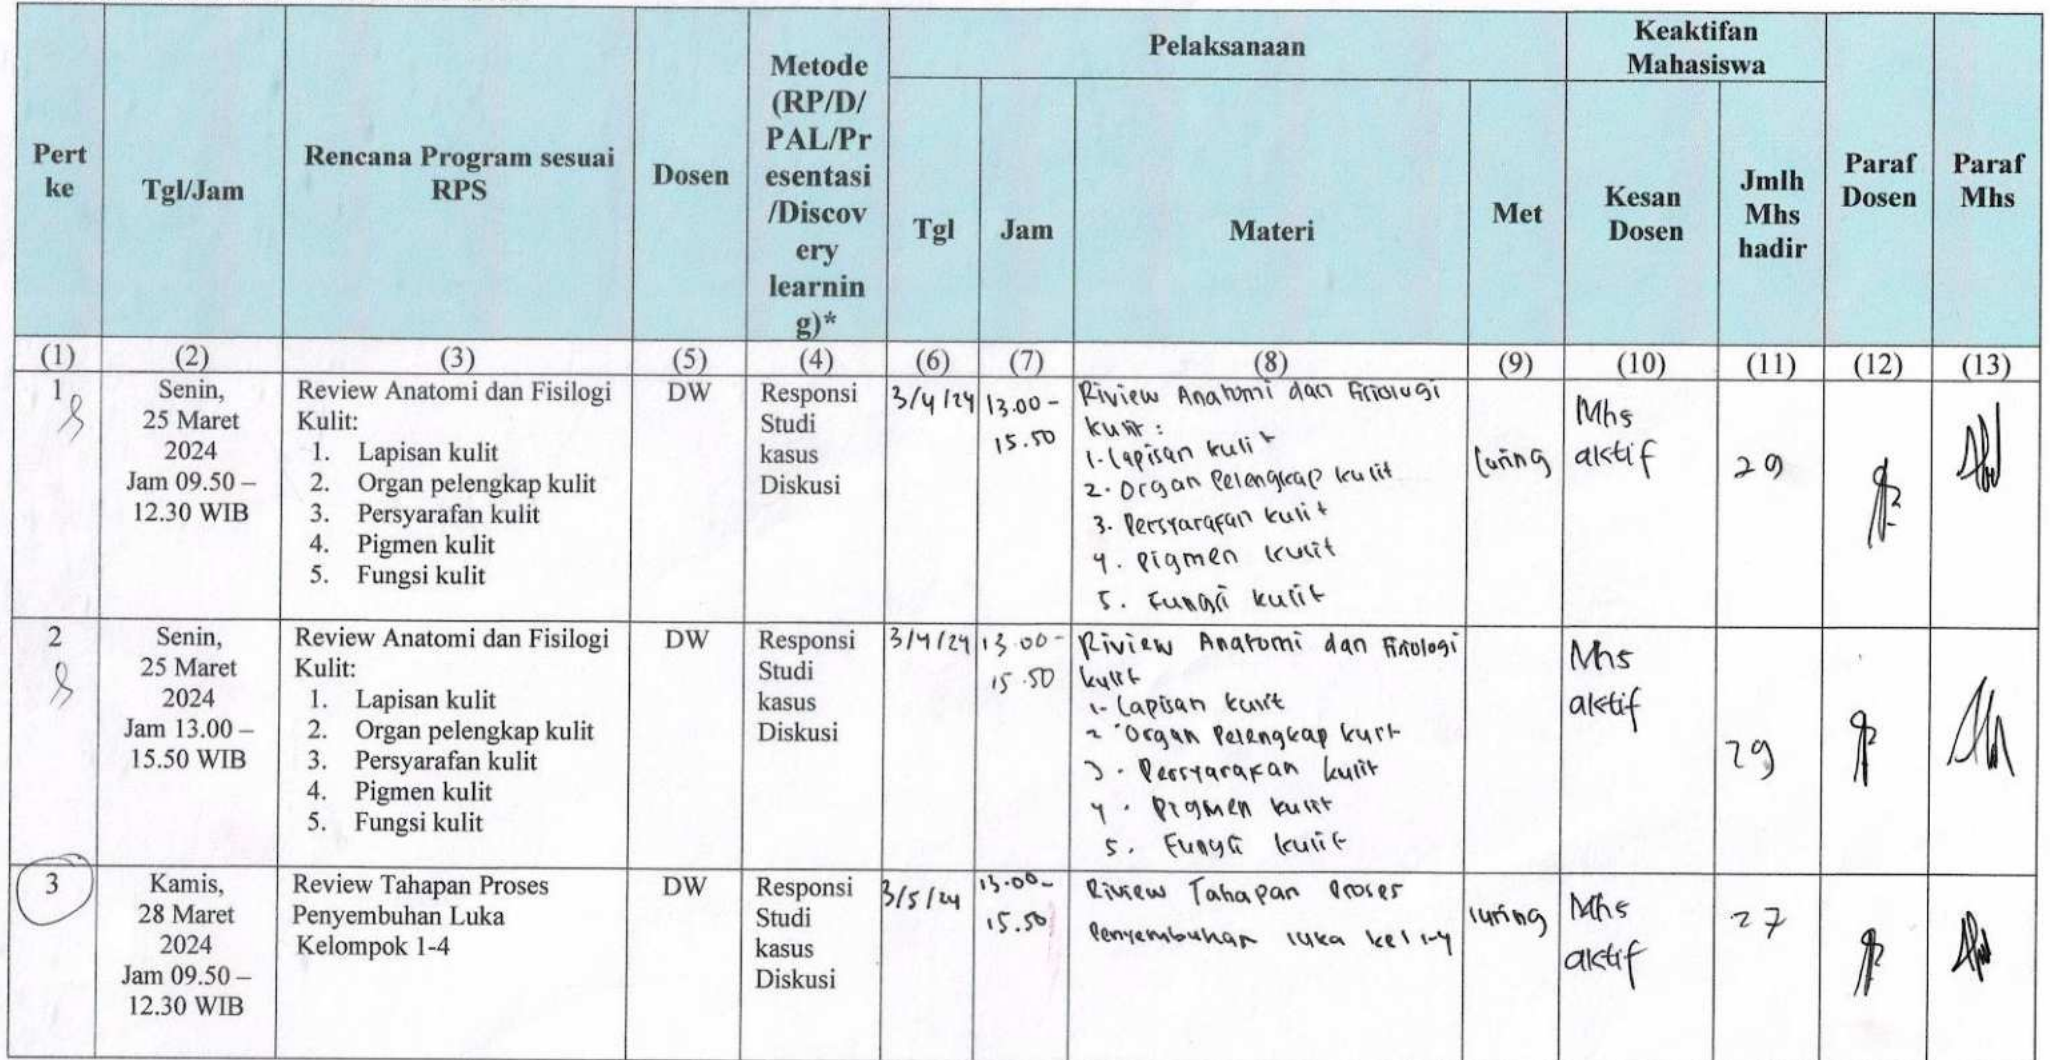 Pert ke
Tgl/Jam
Rencana Program sesuai
RPS
Dosen
Metode
(RP/D/
PAL/Pr
esentasi
/Discov
ery
learnin
g)*
Pelaksanaan
Tgl
Jam
Materi
Met
Keaktifan
Mahasiswa
Kesan
Dosen
Jmlh
Mhs
hadir
Paraf
Dosen
Paraf
Mhs
(1) (2) (3) (5) (4) (6) (7) (8) (9) (10) (11) (12) (13)
1
Senin,
25 Maret
2024
Jam 09.50 –
12.30 WIB
Review Anatomi dan Fisilogi
Kulit:
1. Lapisan kulit
2. Organ pelengkap kulit
3. Persyarafan kulit
4. Pigmen kulit
5. Fungsi kulit
DW
Responsi
Studi
kasus
Diskusi
3/4/24
13.00 -
15.50
Riview Anatomi dan Fisiologi
kulit :
1. Lapisan kulit
2. Organ Pelengkap kulit
3. Persyarafan kulit
4. Pigmen kulit
5. Fungsi kulit
luring
Mhs
aktif
29
2
Senin,
25 Maret
2024
Jam 13.00 –
15.50 WIB
Review Anatomi dan Fisilogi
Kulit:
1. Lapisan kulit
2. Organ pelengkap kulit
3. Persyarafan kulit
4. Pigmen kulit
5. Fungsi kulit
DW
Responsi
Studi
kasus
Diskusi
3/4/24
13.00 -
15.50
Riview Anatomi dan Fisiologi
kulit
1. Lapisan kulit
2. Organ Pelengkap kulit
3. Persyarafan kulit
4. Pigmen kulit
5. Fungsi kulit
Mhs
aktif
29
3
Kamis,
28 Maret
2024
Jam 09.50 –
12.30 WIB
Review Tahapan Proses
Penyembuhan Luka
Kelompok 1-4
DW
Responsi
Studi
kasus
Diskusi
3/5/24
13.00-
15.50
Riview Tahapan Proses
Penyembuhan luka kel 1-4
luring
Mhs
aktif
27